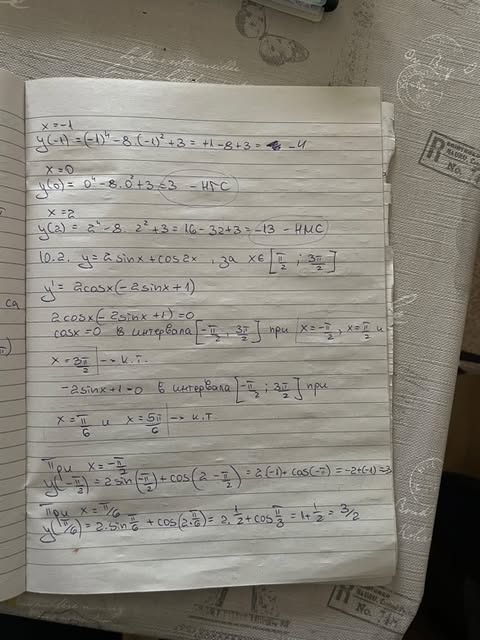 x=-1
y(-1)=(-1)⁴-8.(-1)²+3=+1-8+3= -4
x=0
y(0)=0⁴-8.0²+3=3 - НГС
x=2
y(2)=2⁴-8.2²+3=16-32+3=-13 - НМС
10.2. y=2sinx+cos2x , за x∈[π/2 ; 3π/2]
y'=2cosx(-2sinx+1)
2cosx(-2sinx+1)=0
cosx=0 в интервала [-π/2, 3π/2] при x=-π/2, x=π/2 и
x=3π/2 → к.т.
-2sinx+1=0 в интервала [-π/2 ; 3π/2] при
x=π/6 и x=5π/6 → к.т.
При x=-π/2
y(-π/2)=2sin(-π/2)+cos(2-π/2)=2(-1)+cos(-π)=-2+(-1)=-3
При x=π/6
y(π/6)=2.sin π/6+cos(2.π/6)=2.1/2+cos π/3=1+1/2=3/2
са